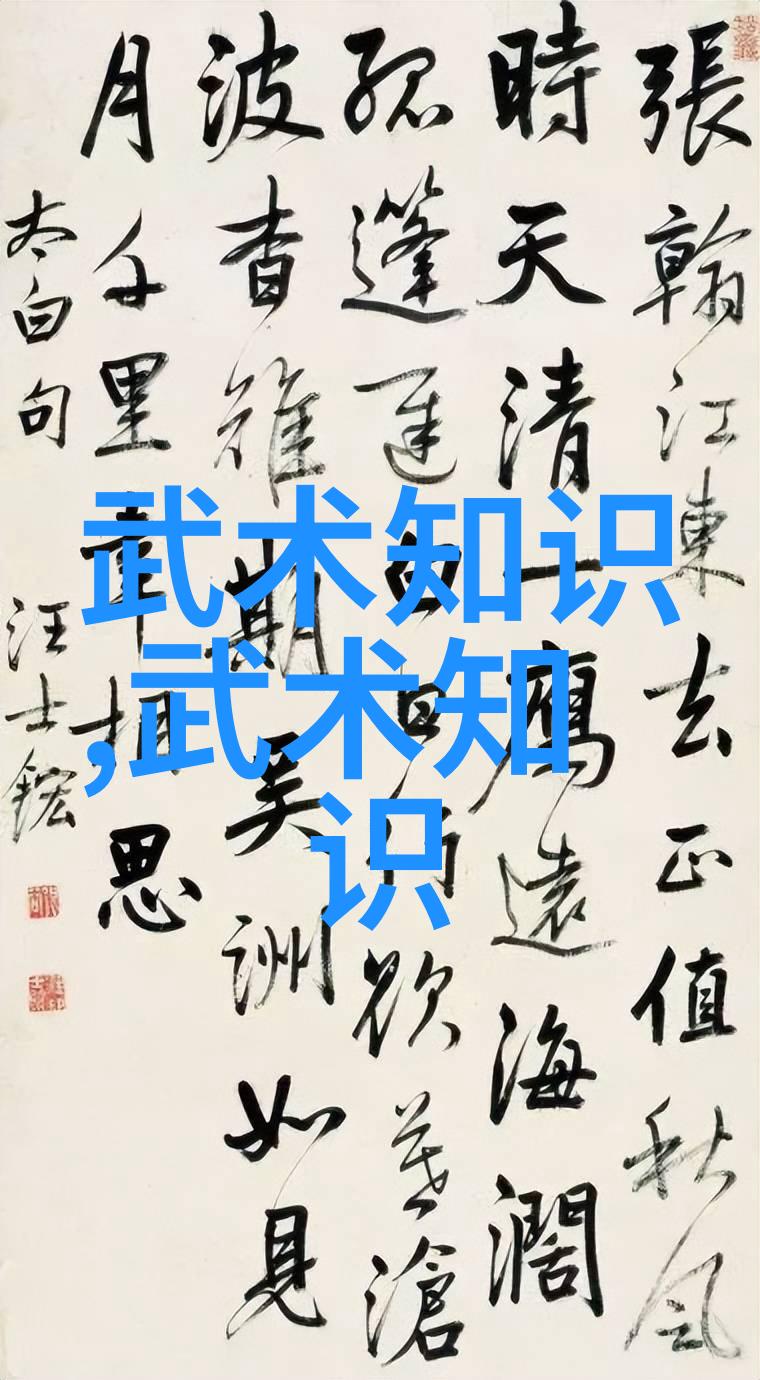 張翰江東去正值秋風
時天清一鴈遠海濶
孤蓬遲白日行欲暮滄
波杳難期吳洲如見
月千里幸相思
太白句 汪士鋐
武术知识
,武术知
识